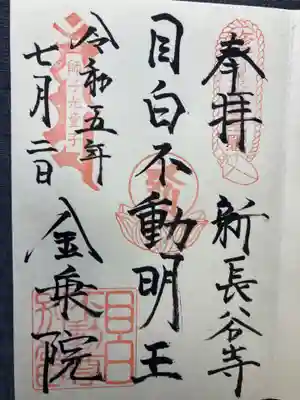 奉拝
新長谷寺
目白不動明王
令和五年
七月二日
金乗院